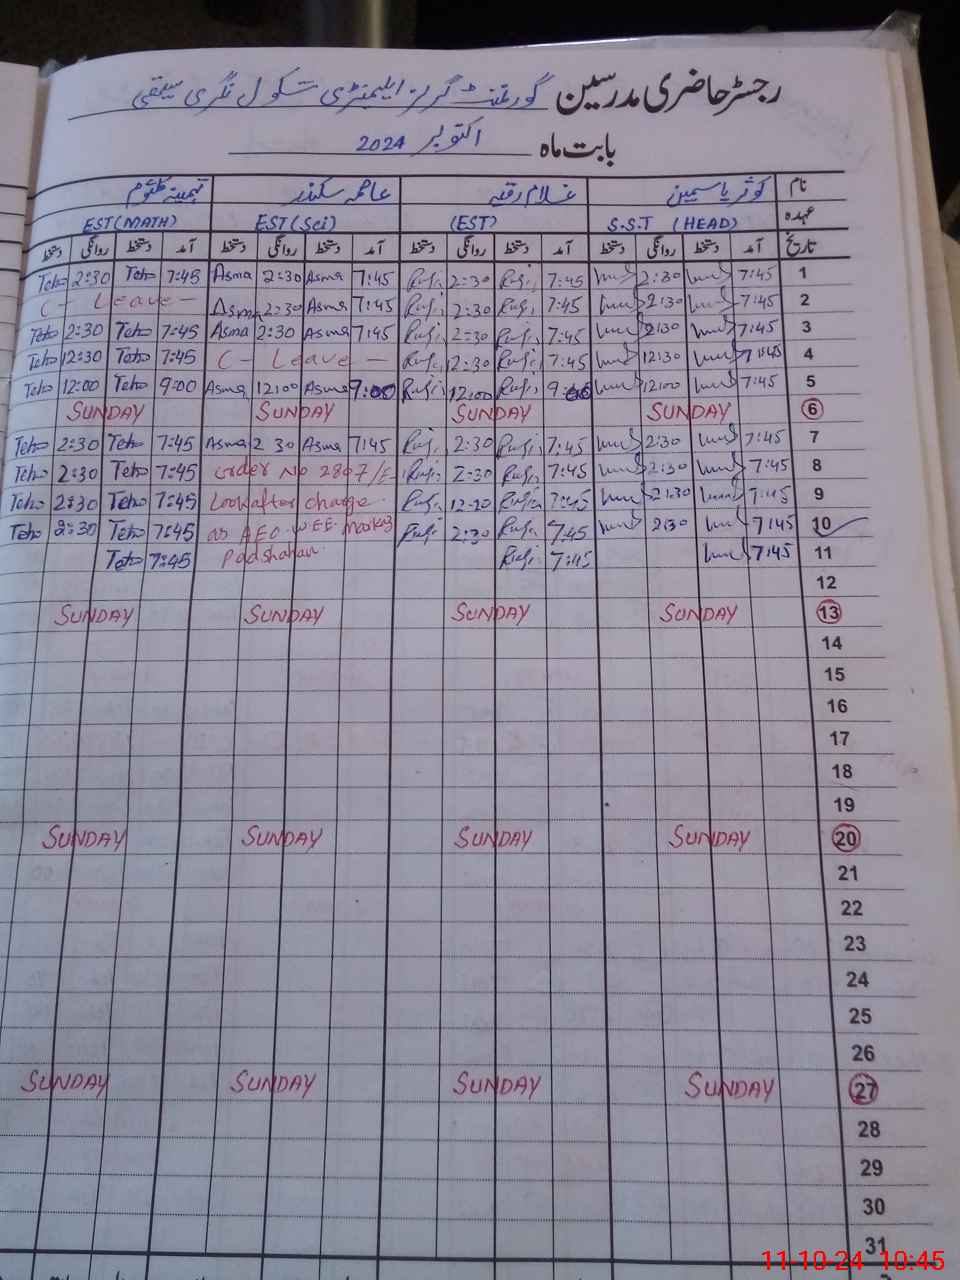 رجسٹر حاضری مدرسین گورنمنٹ گرلز ایلیمنٹری سکول نگری
بابت ماہ اکتوبر 2024
نام کوثر یاسمین غلام رقیہ عاصمہ سکندر تہمینہ کلثوم
عہدہ S.S.T (HEAD) (EST) EST(Sci) EST(MATH)
تاریخ آمد دستخط روانگی دستخط آمد دستخط روانگی دستخط آمد دستخط روانگی دستخط آمد دستخط روانگی دستخط
1 7:45 2:30 7:45 2:30 7:45 Asma 2:30 Asma 7:45 Teho 2:30 Teho
2 7:45 2:30 7:45 2:30 7:45 Asma 2:30 Asma C - Leave -
3 7:45 2:30 7:45 2:30 7:45 Asma 2:30 Asma 7:45 Teho 2:30 Teho
4 7:45 12:30 7:45 12:30 C - Leave - 7:45 Teho 12:30 Teho
5 7:45 12:00 9:00 12:00 9:00 Asma 12:00 Asma 9:00 Teho 12:00 Teho
6 SUNDAY SUNDAY SUNDAY SUNDAY
7 7:45 2:30 7:45 2:30 7:45 Asma 2 30 Asma 7:45 Teho 2:30 Teho
8 7:45 2:30 7:45 2:30 order No 2807/E- 7:45 Teho 2:30 Teho
9 7:45 2:30 7:45 Look after charge 7:45 Teho 2:30 Teho
10 7:45 2:30 7:45 2:30 as AEO WEE markaz 7:45 Teho 2:30 Teho
11 7:45 7:45 Padshahan 7:45 Teho
12
13 SUNDAY SUNDAY SUNDAY SUNDAY
14
15
16
17
18
19
20 SUNDAY SUNDAY SUNDAY SUNDAY
21
22
23
24
25
26
27 SUNDAY SUNDAY SUNDAY SUNDAY
28
29
30
31
11-10-24 10:45